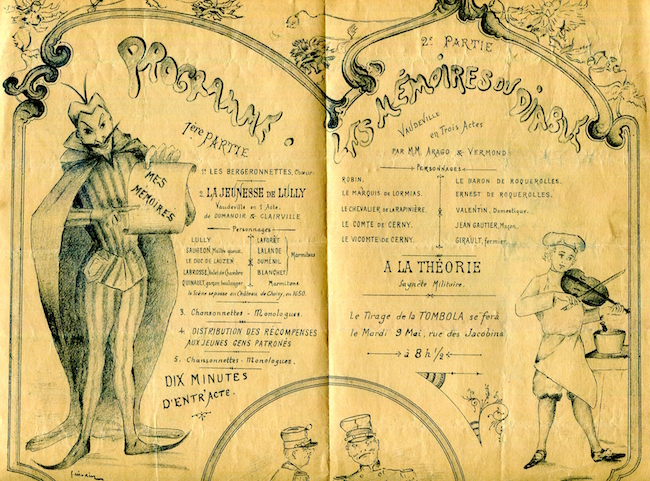 PROGRAMME.
1ère PARTIE
1º LES BERGERONNETTES, Chœur
2. LA JEUNESSE DE LULLY
Vaudeville en 1 Acte.
de DUMANOIR & CLAIRVILLE
Personnages
LULLY
SAUGEON, Maître queux.
LE DUC DE LAUZEN
LABROSSE, Valet de Chambre
QUINAULT, garçon boulanger
LAFORÊT
LALANDE
DUMÉNIL
BLANCHET
Marmitons
Marmitons
la Scène se passe au Château de Choisy, en 1650.
3. Chansonnettes - Monologues.
4. DISTRIBUTION DES RÉCOMPENSES
AUX JEUNES GENS PATRONÉS
5. Chansonnettes - Monologues.
DIX MINUTES
D'ENTR'ACTE.
MES
MÉMOIRES
2e PARTIE
LES MÉMOIRES DU DIABLE
VAUDEVILLE
en Trois Actes
PAR M.M. ARAGO & VERMOND
Personnages
ROBIN.
LE MARQUIS DE LORMIAS.
LE CHEVALIER DE LA RAPINIÈRE.
LE COMTE DE CERNY.
LE VICOMTE DE CERNY.
LE BARON DE ROQUEROLLES.
ERNEST DE ROQUEROLLES.
VALENTIN, Domestique.
JEAN GAUTIER, Maçon.
GIRAULT, fermier.
A LA THÉORIE
Saynète Militaire.
Le Tirage de la TOMBOLA se fera
le Mardi 9 Mai, rue des Jacobins
à 8h ½